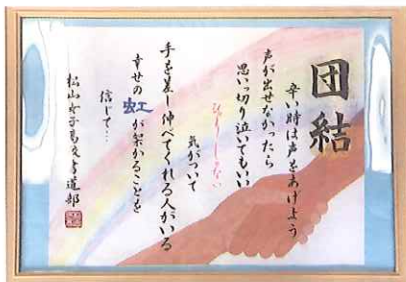 団結
辛い時は声をあげよう
声が出せなかったら
思いっ切り泣いてもいい
ひとりじゃない
気がついて
手を差し伸べてくれる人がいる
幸せの虹が架かることを
信じて…
松山女子高校書道部